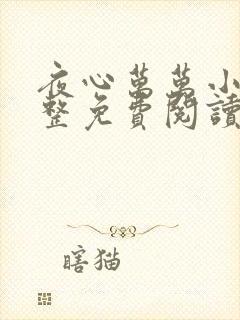 夜心萬萬小
整免費閱讀
瞎猫